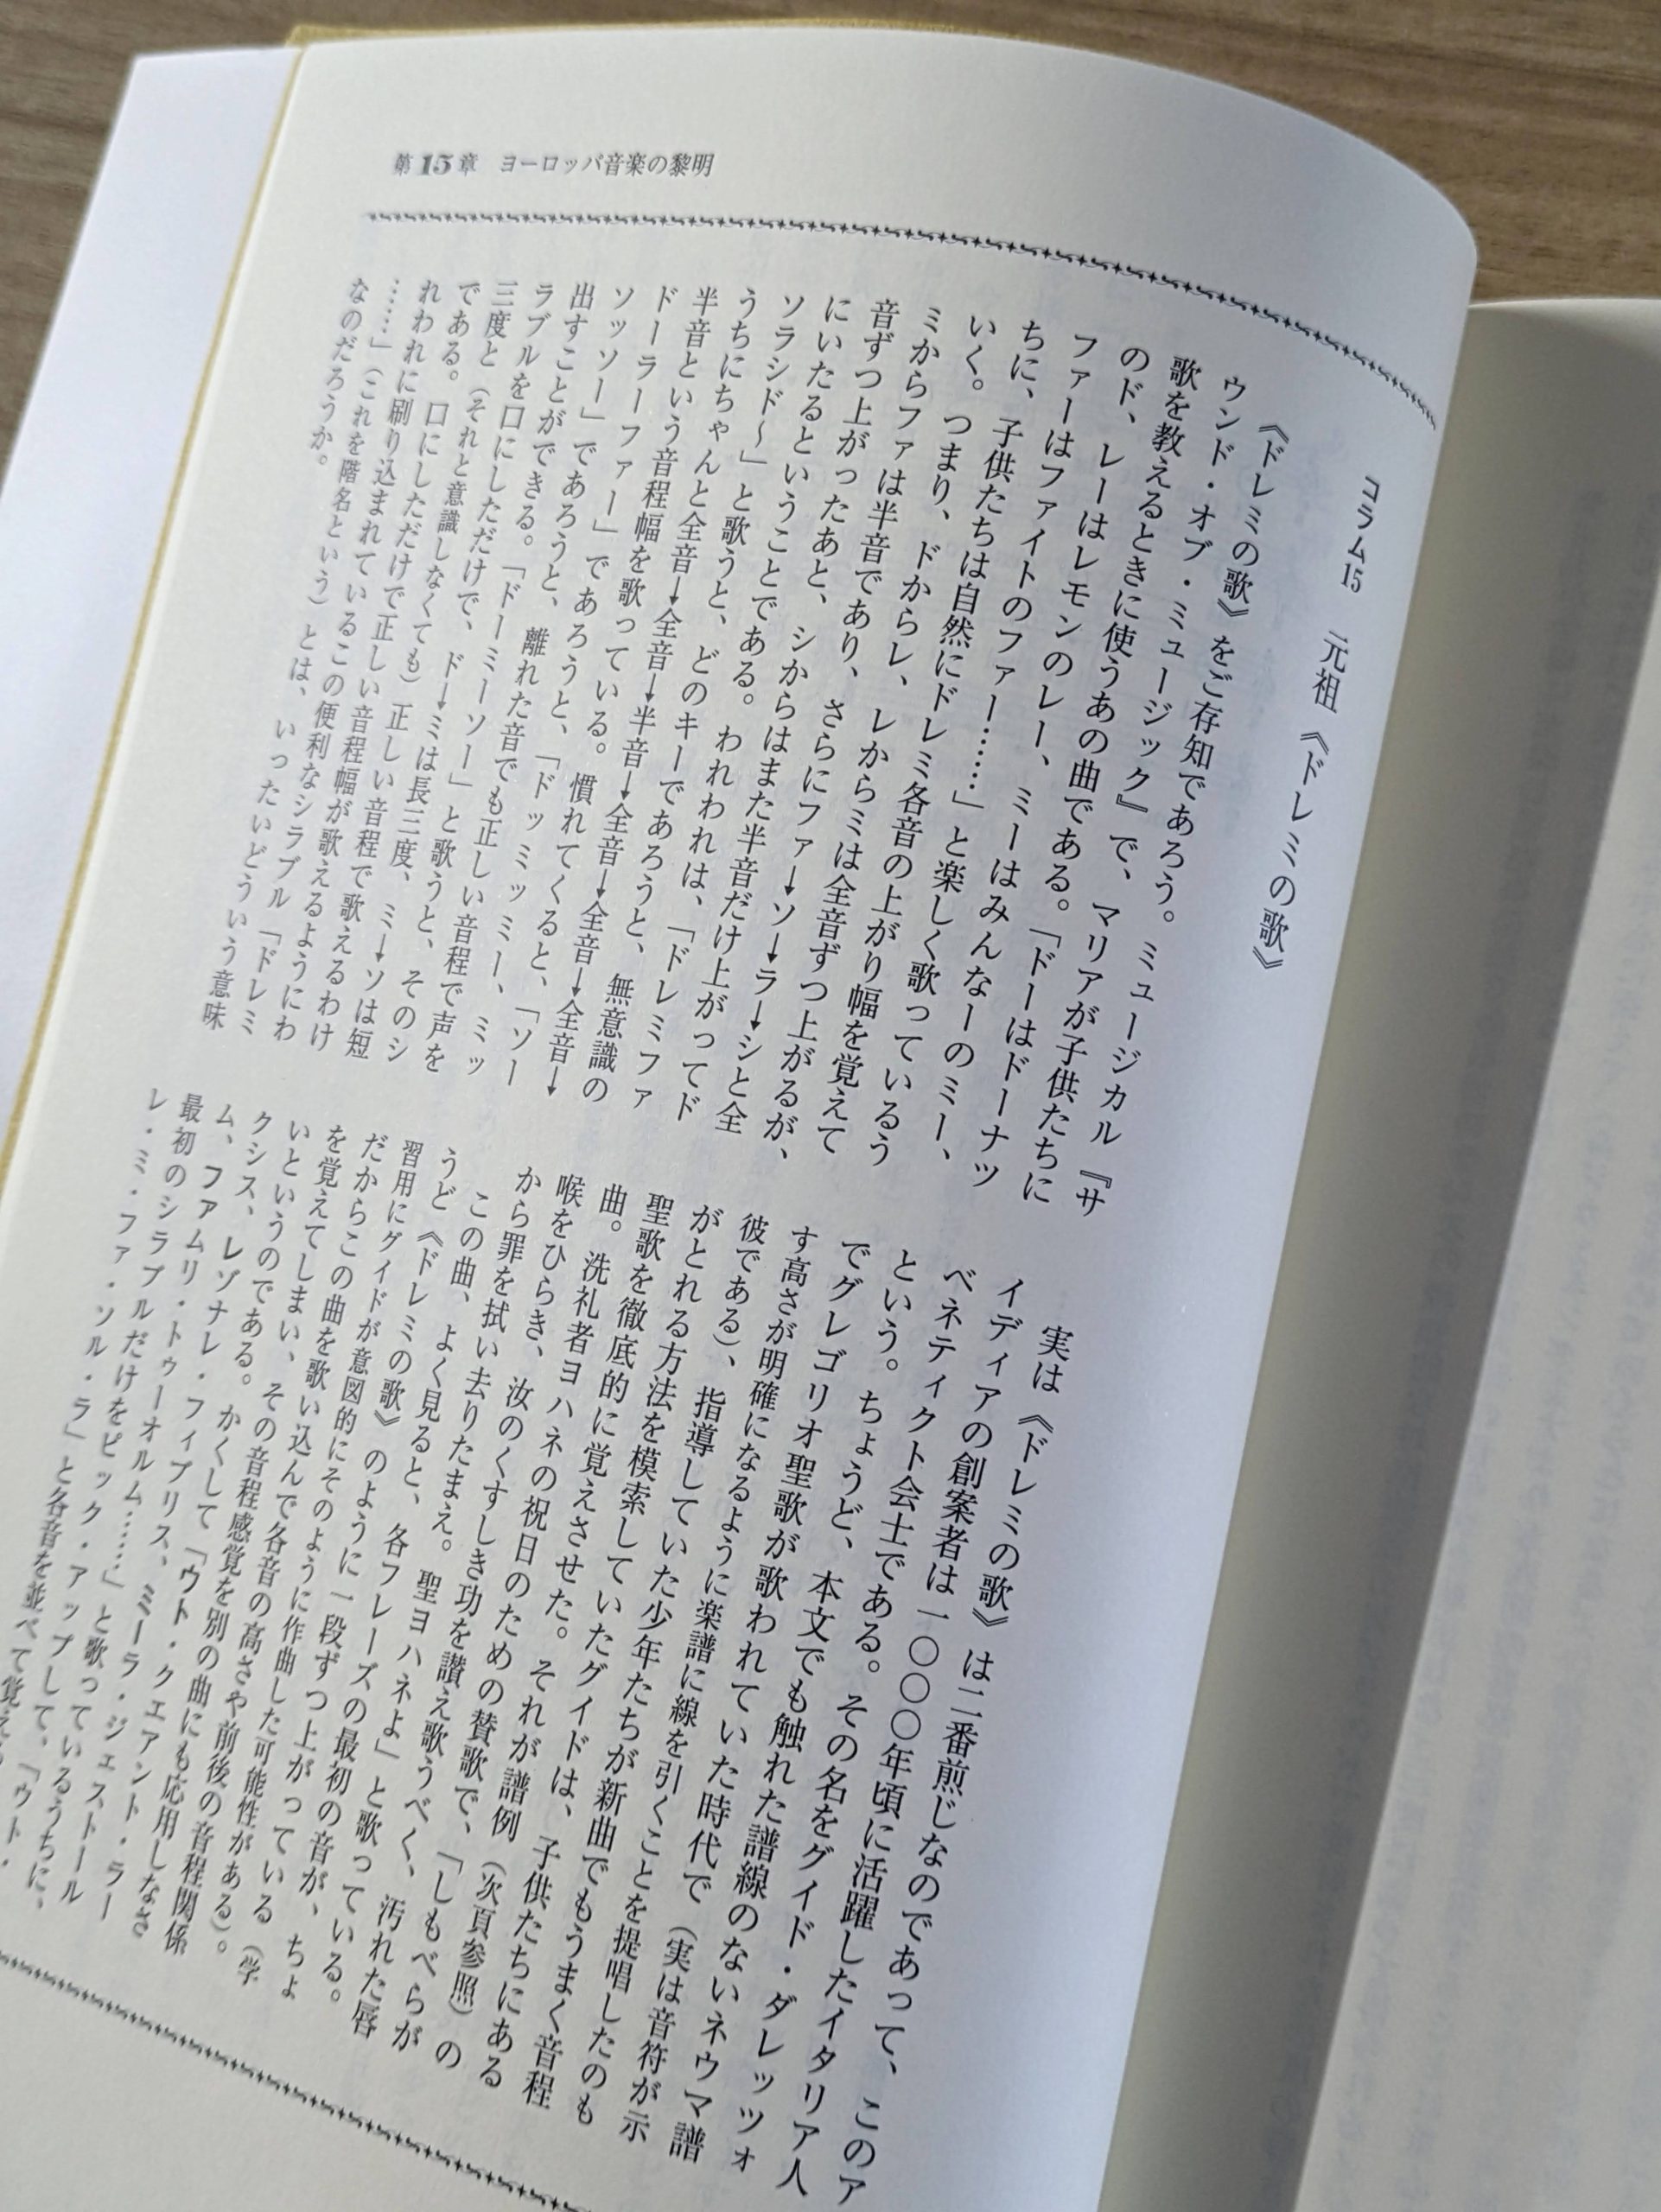 第15章 ヨーロッパ音楽の黎明
コラム15 元祖《ドレミの歌》
《ドレミの歌》をご存知であろう。ミュージカル『サ
ウンド・オブ・ミュージック』で、マリアが子供たちに
歌を教えるときに使うあの曲である。「ドーはドーナツ
のド、レーはレモンのレー、ミーはみんなーのミー、
ファーはファイトのファー……」と楽しく歌っているう
ちに、子供たちは自然にドレミ各音の上がり幅を覚えて
いく。つまり、ドからレ、レからミは全音ずつ上がるが、
ミからファは半音であり、さらにファ→ソ→ラ→シと全
音ずつ上がったあと、シからはまた半音だけ上がってド
にいたるということである。われわれは、「ドレミファ
ソラシド〜」と歌うと、どのキーであろうと、無意識の
うちにちゃんと全音→全音→半音→全音→全音→全音→
半音という音程幅を歌っている。慣れてくると、「ソー
ドーラーファー」であろうと、「ドッミッミー、ミッ
ソッソー」であろうと、離れた音でも正しい音程で声を
出すことができる。「ドーミーソー」と歌うと、そのシ
ラブルを口にしただけで、ド→ミは長三度、ミ→ソは短
三度と(それと意識しなくても)正しい音程で歌えるわけ
である。口にしただけで正しい音程幅が歌えるようにわ
れわれに刷り込まれているこの便利なシラブル「ドレミ
……」(これを階名という)とは、いったいどういう意味
なのだろうか。
実は《ドレミの歌》は二番煎じなのであって、このア
イディアの創案者は一〇〇〇年頃に活躍したイタリア人
ベネティクト会士である。その名をグイド・ダレッツォ
という。ちょうど、本文でも触れた譜線のないネウマ譜
でグレゴリオ聖歌が歌われていた時代で(実は音符が示
す高さが明確になるように楽譜に線を引くことを提唱したのも
彼である)、指導していた少年たちが新曲でもうまく音程
がとれる方法を模索していたグイドは、子供たちにある
聖歌を徹底的に覚えさせた。それが譜例(次頁参照)の
曲。洗礼者ヨハネの祝日のための賛歌で、「しもべらが
喉をひらき、汝のくすしき功を讃え歌うべく、汚れた唇
から罪を拭い去りたまえ。聖ヨハネよ」と歌っている。
この曲、よく見ると、各フレーズの最初の音が、ちょ
うど《ドレミの歌》のように一段ずつ上がっている(学
習用にグイドが意図的にそのように作曲した可能性がある)。
だからこの曲を歌い込んで各音の高さや前後の音程関係
を覚えてしまい、その音程感覚を別の曲にも応用しなさ
いというのである。かくして「ウト・クエアント・ラー
クシス、レゾナレ・フィブリス、ミーラ・ジェストール
ム、ファムリ・トゥーオルム……」と歌っているうちに、
最初のシラブルだけをピック・アップして、「ウト・
レ・ミ・ファ・ソル・ラ」と各音を並べて覚え